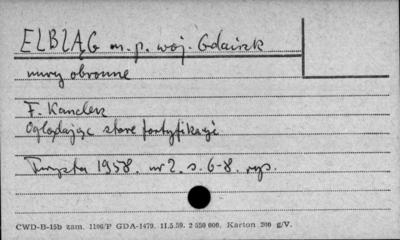 ELBLĄG m. p. woj. Gdańsk
mury obronne
F. Kandler
Oglądając stare fortyfikacje
Turysta 1958. nr 2. s. 6-8. rys.
CWD-B-15b zam. 1106/P GDA-1479. 11.5.59. 2 550 000. Karton 200 g/V.